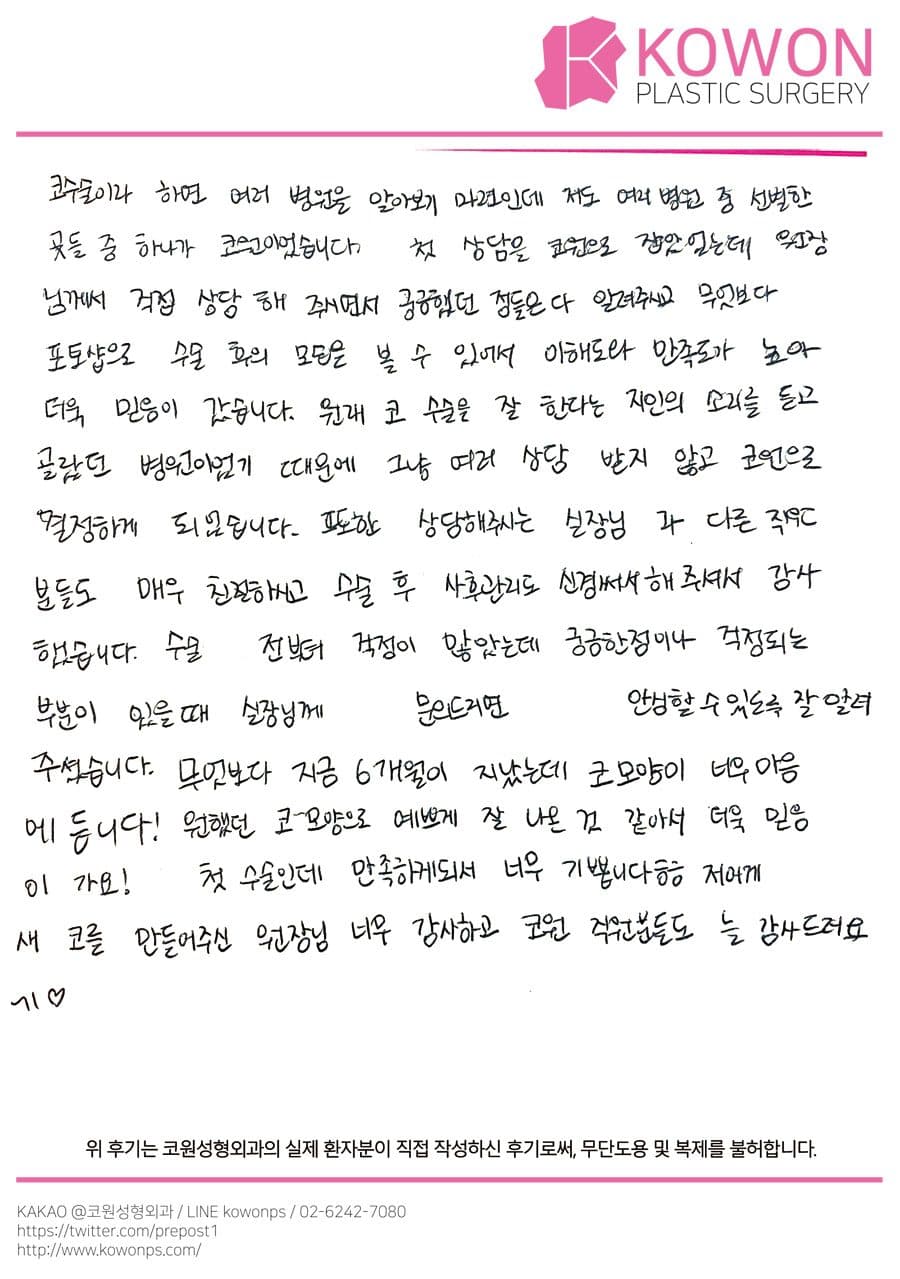 KOWON
PLASTIC SURGERY
코수술이라 하면 여러 병원을 알아보기 마련인데 저도 여러 병원 중 선별한
곳들 중 하나가 코원이었습니다. 첫 상담을 코원으로 잡았었는데 원장
님께서 직접 상담 해 주시면서 궁금했던 점들은 다 알려주시고 무엇보다
포토샵으로 수술 후의 모습을 볼 수 있어서 이해도와 만족도가 높아
더욱 믿음이 갔습니다. 원래 코 수술을 잘 한다는 지인의 소리를 듣고
골랐던 병원이었기 때문에 그냥 여러 상담 받지 않고 코원으로
결정하게 되었습니다. 또한 상담해주시는 실장님 과 다른 직원
분들도 매우 친절하시고 수술 후 사후관리도 신경써서 해 주셔서 감사
했습니다. 수술 전부터 걱정이 많았는데 궁금한점이나 걱정되는
부분이 있을때 실장님께 문의드리면 안심할 수 있도록 잘 알려
주셨습니다. 무엇보다 지금 6개월이 지났는데 코모양이 너무 마음
에 듭니다! 원했던 코모양으로 예쁘게 잘 나온 것 같아서 더욱 믿음
이 가요! 첫 수술인데 만족하게되서 너무 기쁩니다ㅎㅎ 저에게
새 코를 만들어주신 원장님 너무 감사하고 코원 직원분들도 늘 감사드려요
ㄱㅣ♡
위 후기는 코원성형외과의 실제 환자분이 직접 작성하신 후기로써, 무단도용 및 복제를 불허합니다.
KAKAO @코원성형외과 / LINE kowonps / 02-6242-7080
https://twitter.com/prepost1
http://www.kowonps.com/